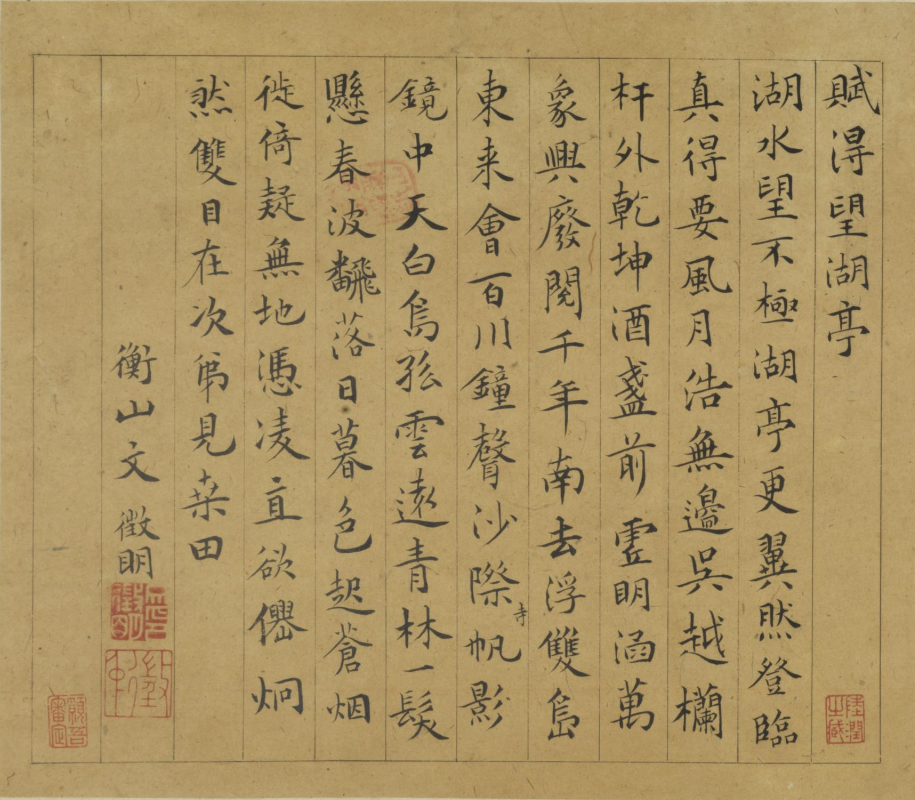 賦得望湖亭
湖水望不極湖亭更翼然登臨
真得要風月浩無邊吳越欄
杆外乾坤酒盞前虛明涵萬
象興廢閱千年南去浮雙島
東来會百川鐘聲沙際寺帆影
鏡中天白鳥孤雲遠青林一髮
懸春波飜落日暮色起蒼烟
徙倚疑無地憑凌直欲僊炯
然雙目在次第見桒田
衡山文徵明